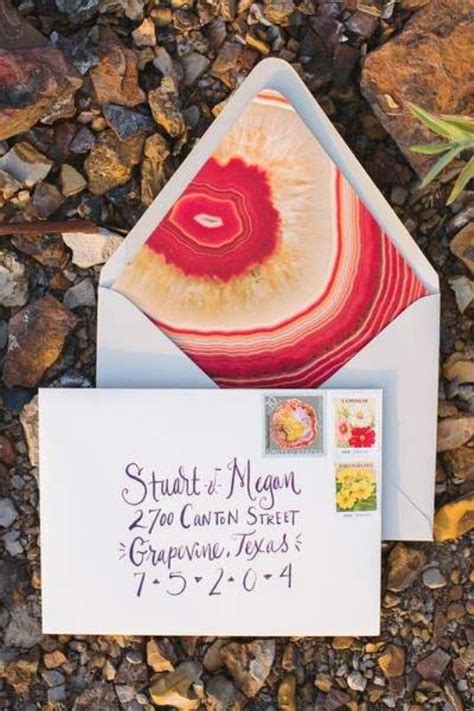 COSMOS
UNITED STATES
Stuart & Megan
2700 Canton Street
Grapevine, Texas
7•5•2•0•4